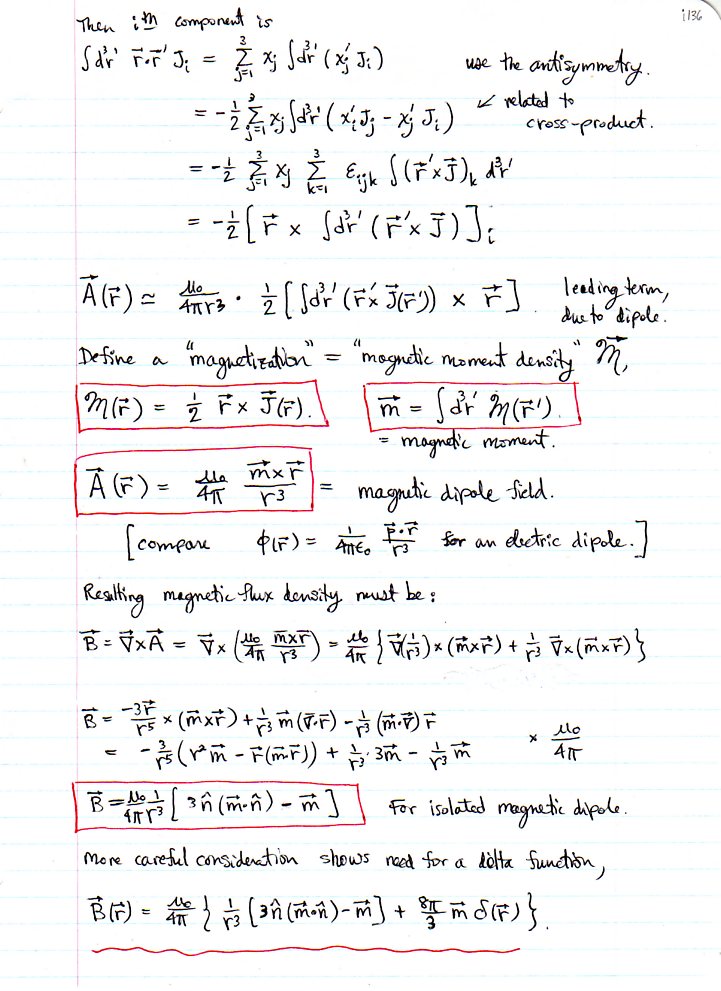 i136
Then ith component is
∫d³r' r⃗·r⃗' Jᵢ = Σ_{j=1}^{3} xⱼ ∫d³r' (xⱼ' Jᵢ) use the antisymmetry.
= -½ Σ_{j=1}^{3} xⱼ ∫d³r' (xᵢ' Jⱼ - xⱼ' Jᵢ) ↙ related to
cross-product.
= -½ Σ_{j=1}^{3} xⱼ Σ_{k=1}^{3} εᵢⱼₖ ∫(r⃗'×J⃗)ₖ d³r'
= -½ [r⃗ × ∫d³r' (r⃗'×J⃗)]ᵢ
A⃗(r⃗) ≃ μ₀/4πr³ · ½ [∫d³r' (r⃗'×J⃗(r⃗')) × r⃗]. leading term,
due to dipole.
Define a "magnetization" = "magnetic moment density" M⃗,
M(r⃗) = ½ r⃗ × J⃗(r⃗). m⃗ = ∫d³r' M(r⃗').
= magnetic moment.
A⃗(r⃗) = μ₀/4π (m⃗×r⃗)/r³ = magnetic dipole field.
[compare ϕ(r⃗) = 1/4πε₀ (p⃗·r⃗)/r³ for an electric dipole.]
Resulting magnetic flux density must be:
B⃗ = ∇⃗×A⃗ = ∇⃗×(μ₀/4π (m⃗×r⃗)/r³) = μ₀/4π {∇⃗(1/r³)×(m⃗×r⃗) + 1/r³ ∇⃗×(m⃗×r⃗)}
B⃗ = -3r⃗/r⁵ × (m⃗×r⃗) + 1/r³ m⃗(∇⃗·r⃗) - 1/r³ (m⃗·∇⃗) r⃗
= -3/r⁵ (r²m⃗ - r⃗(m⃗·r⃗)) + 1/r³ · 3m⃗ - 1/r³ m⃗ × μ₀/4π
B⃗ = μ₀/4π 1/r³ [3n̂(m⃗·n̂) - m⃗] For isolated magnetic dipole.
More careful consideration shows need for a delta function,
B⃗(r⃗) = μ₀/4π {1/r³ [3n̂(m⃗·n̂) - m⃗] + 8π/3 m⃗ δ(r⃗)}.